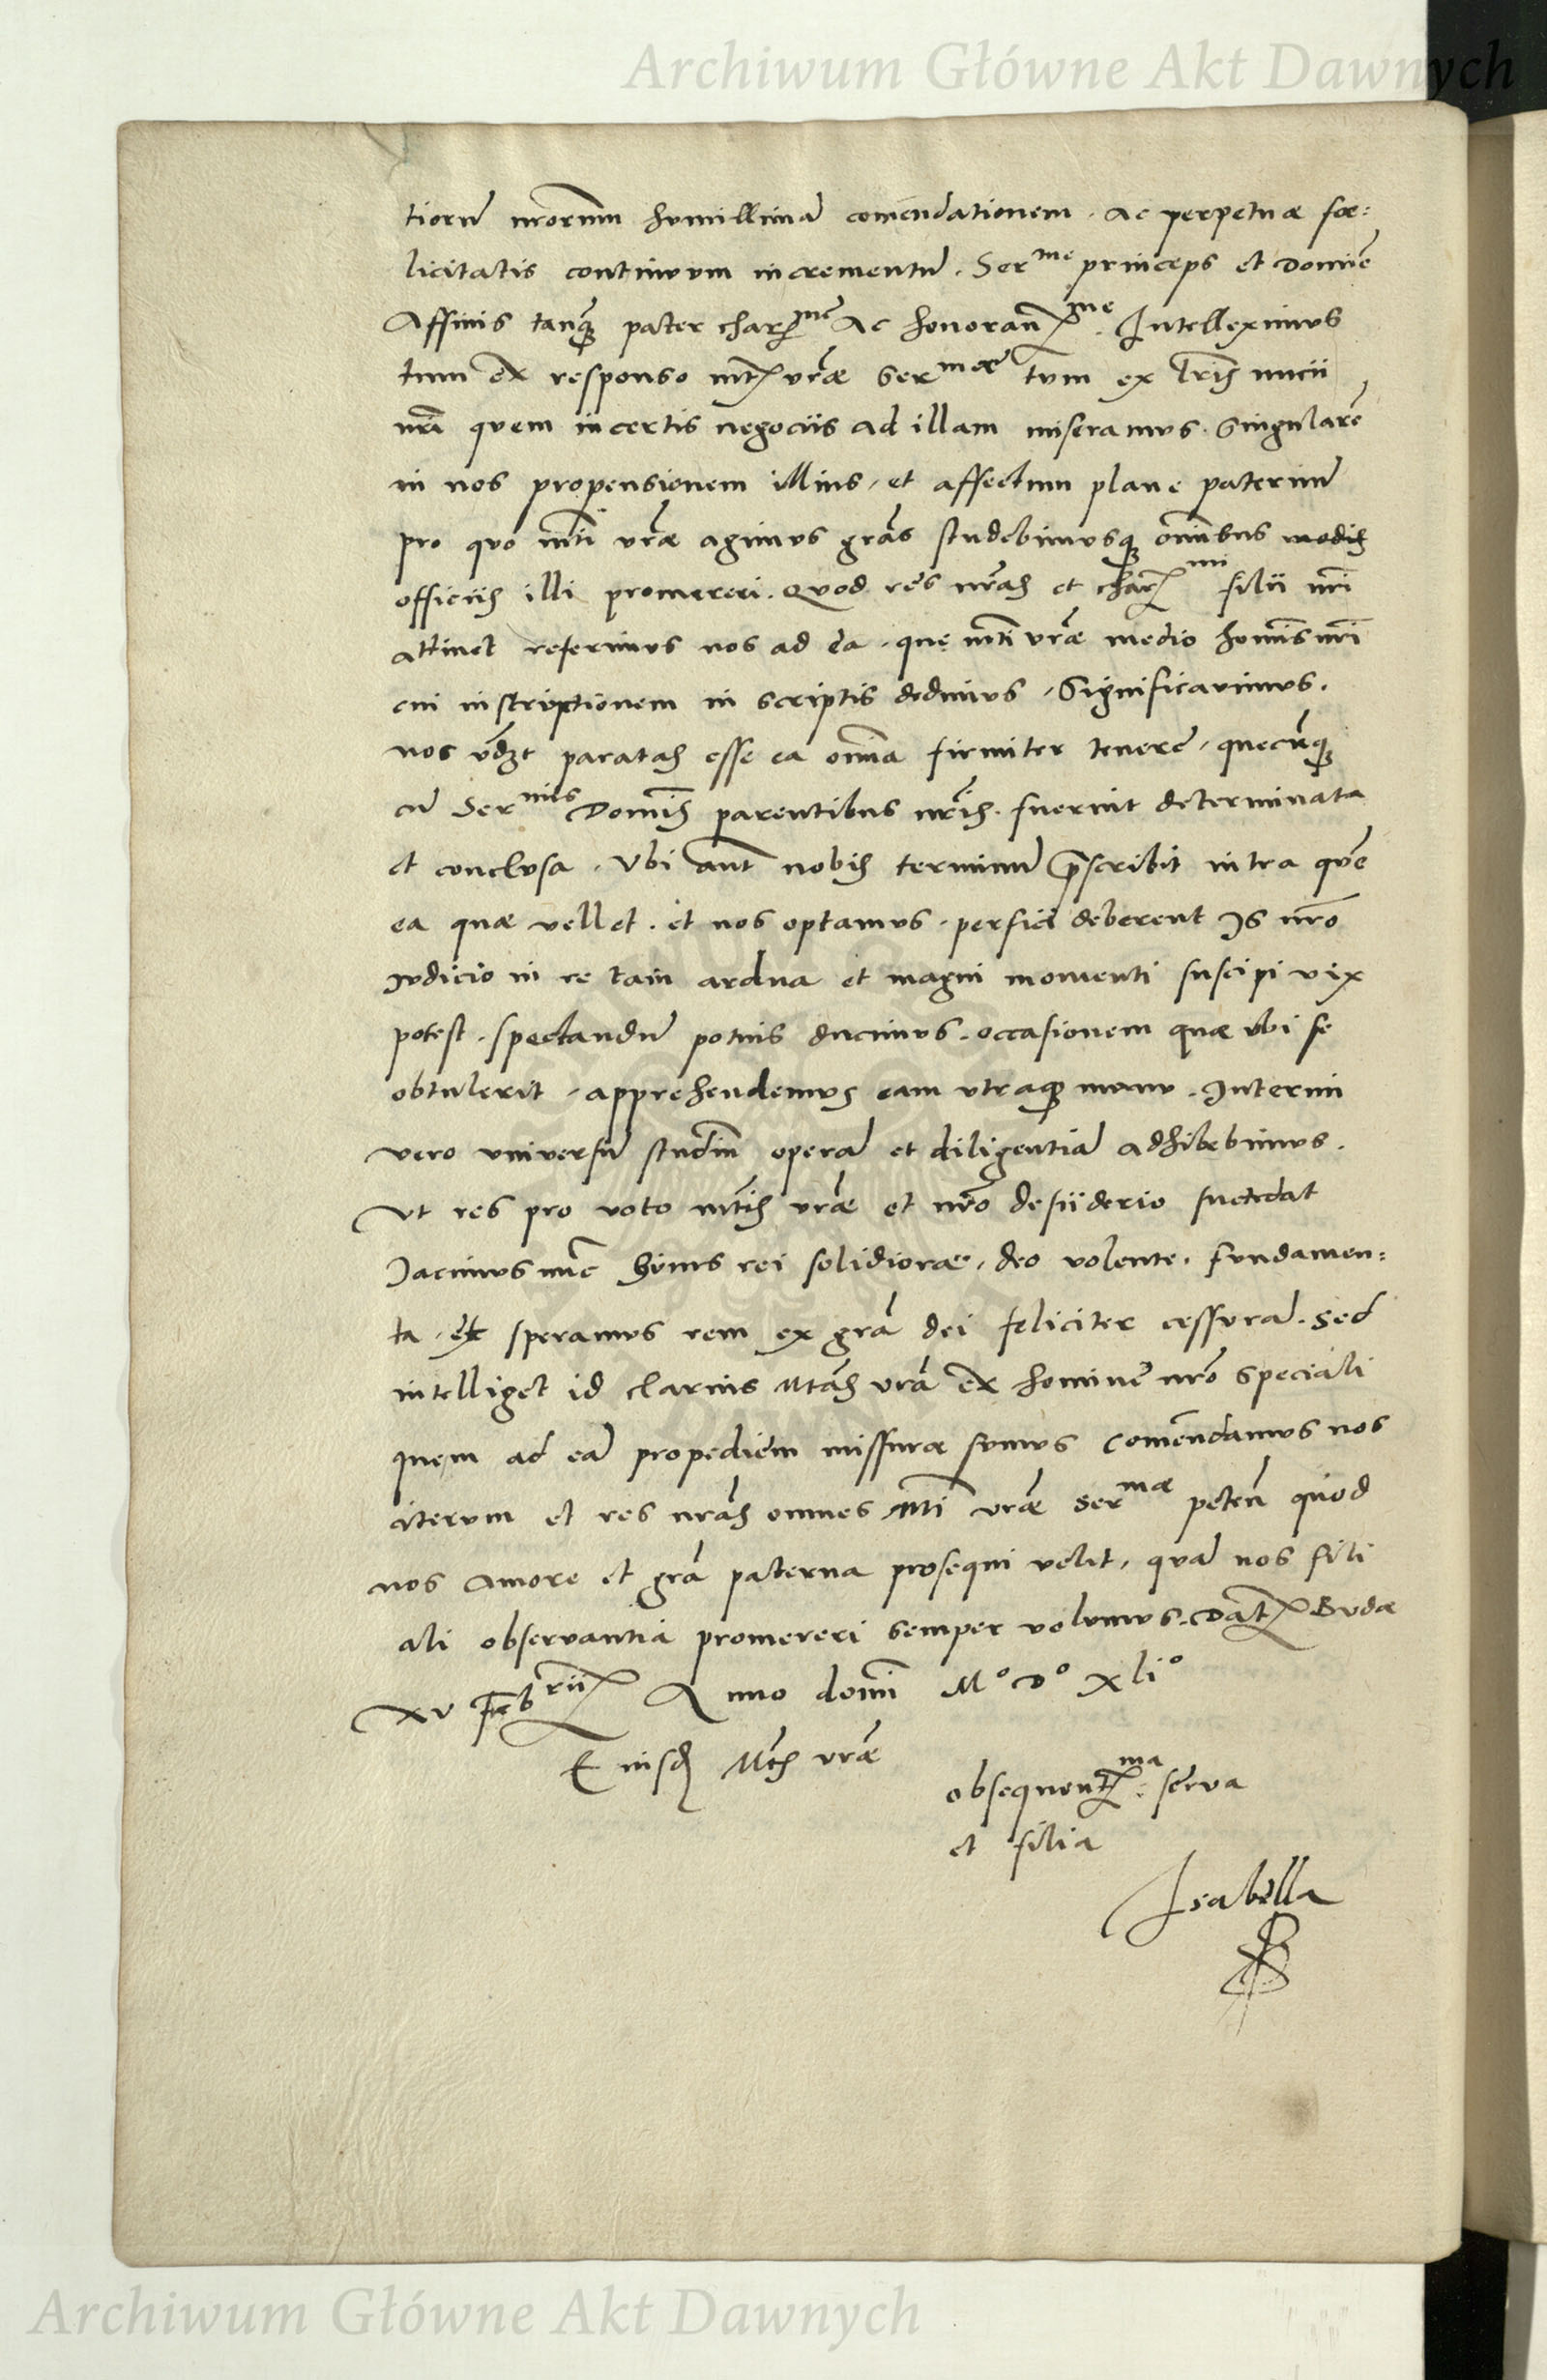 Archiwum Główne Akt Dawnych
tiorū nr̄orumm humillimā com̄endationem. Ac perpetuæ fœ:
licitatis continuum incrementū. Ser^me princeps et Domīe
Affinis tanq̄ pater char^me Ac honoran^me. Intelleximus
tum ex responso mt̄ vr̄æ ser^mæ tum ex lr̄is nuncii
nr̄i quem in certis negociis ad illam miseramus. Singularē
in nos propensionem illius, et affectum plane paternū
pro quo mt̄i vr̄æ agimus grās studebimusq̄ om̄ibus modis
officiis illi promereri. Quod res nr̄as et char^mi filii nr̄i
attinet referimus nos ad ea. que mt̄i vr̄æ medio homīs nr̄i
cui instruptionem in scriptis dedimus, Significavimus.
nos vd̄z paratas esse ea om̄ia firmiter tenere, quecūq̄
cū Ser^mis Domīs parentibus nr̄is. fuerint determinata
et conclusa. Ubi aut̄ nobis terminū p̄scribit intra quē
ea quæ vellet. et nos optamus. perfici deberent Is nr̄o
Iudicio in re tam ardua et magni momenti suscipi vix
potest. spectandū potius ducimus. occasionem quæ ubi se
obtulerit, apprehendemus eam utraq̄ manu. Interim
vero universū studiū operā et diligentiā adhibebimus.
Ut res pro voto mt̄is vr̄æ et nr̄o desiiderio succedat
Iacimus nūc huius rei solidioræ, deo volente. fundamen:
ta. et speramus rem ex grā dei feliciter cessurā. Sed
intelliget id clarius Mtās vrā ex homine nr̄o speciali
quem ad eā propediem missuræ sumus Com̄endamus nos
iterum et res nr̄as omnes Mt̄i vr̄æ ser^mæ peten̄ quod
nos Amore et grā paterna prosequi velit, quā nos fili
ali observantia promereri semper volumus. Dat̄ Budæ
XV Feb^rii Anno domī M° D° xli°
Eiusd̄ Mt̄is vr̄æ
obsequent^ma: serva
et filia
Isabella
Archiwum Główne Akt Dawnych